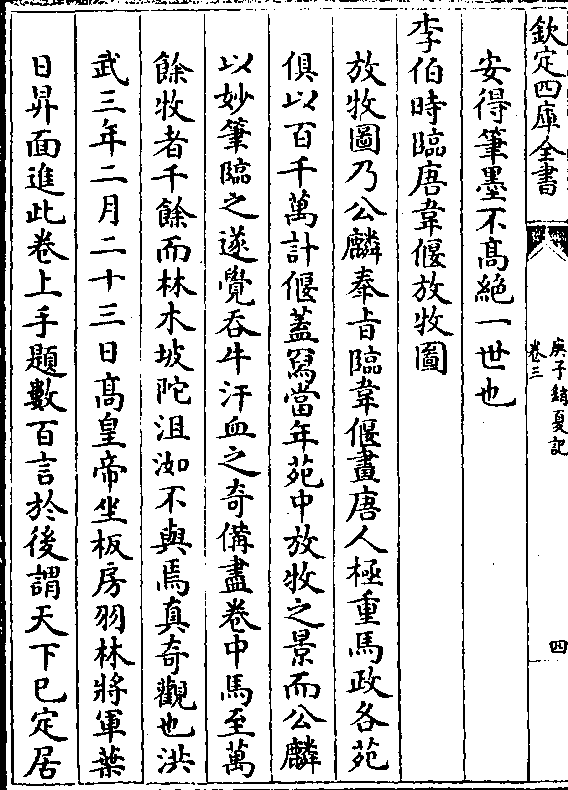 欽定四庫全書
庚子銷夏記
卷三
四
安得筆墨不髙絶一世也
李伯時臨唐韋偃放牧圖
放牧圖乃公麟奉旨臨韋偃畫唐人極重馬政各苑
俱以百千萬計偃蓋寫當年苑中放牧之景而公麟
以妙筆臨之遂覺吞牛汗血之奇備盡卷中馬至萬
餘牧者千餘而林木坡陀沮洳不與焉真奇觀也洪
武三年二月二十三日髙皇帝坐板房羽林將軍葉
日昇面進此卷上手題數百言於後謂天下已定居